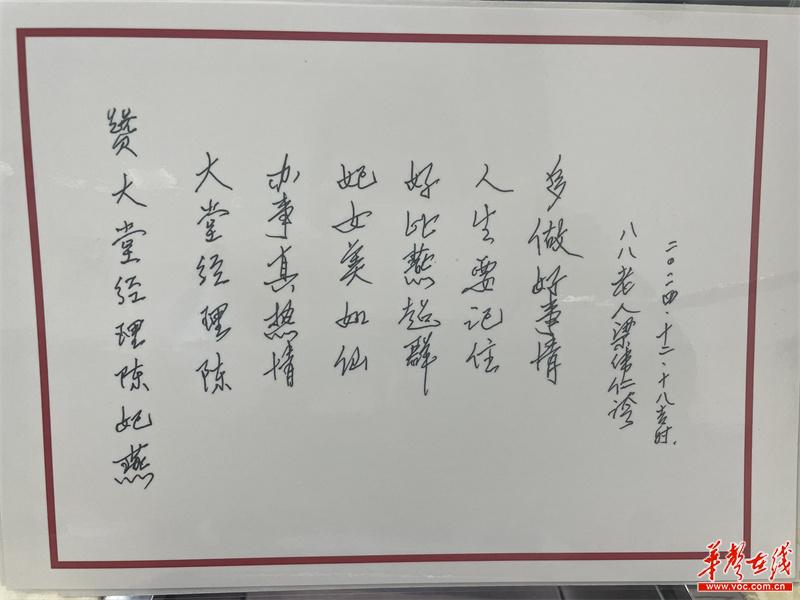 赞大堂经理陈妃燕
大堂经理陈
办事真热情
妃女美如仙
好比燕超群
人生要记住
多做好事情
八八老人梁伟仁
二〇二四·十二·十八吉时.
华声在线
www.voc.com.cn